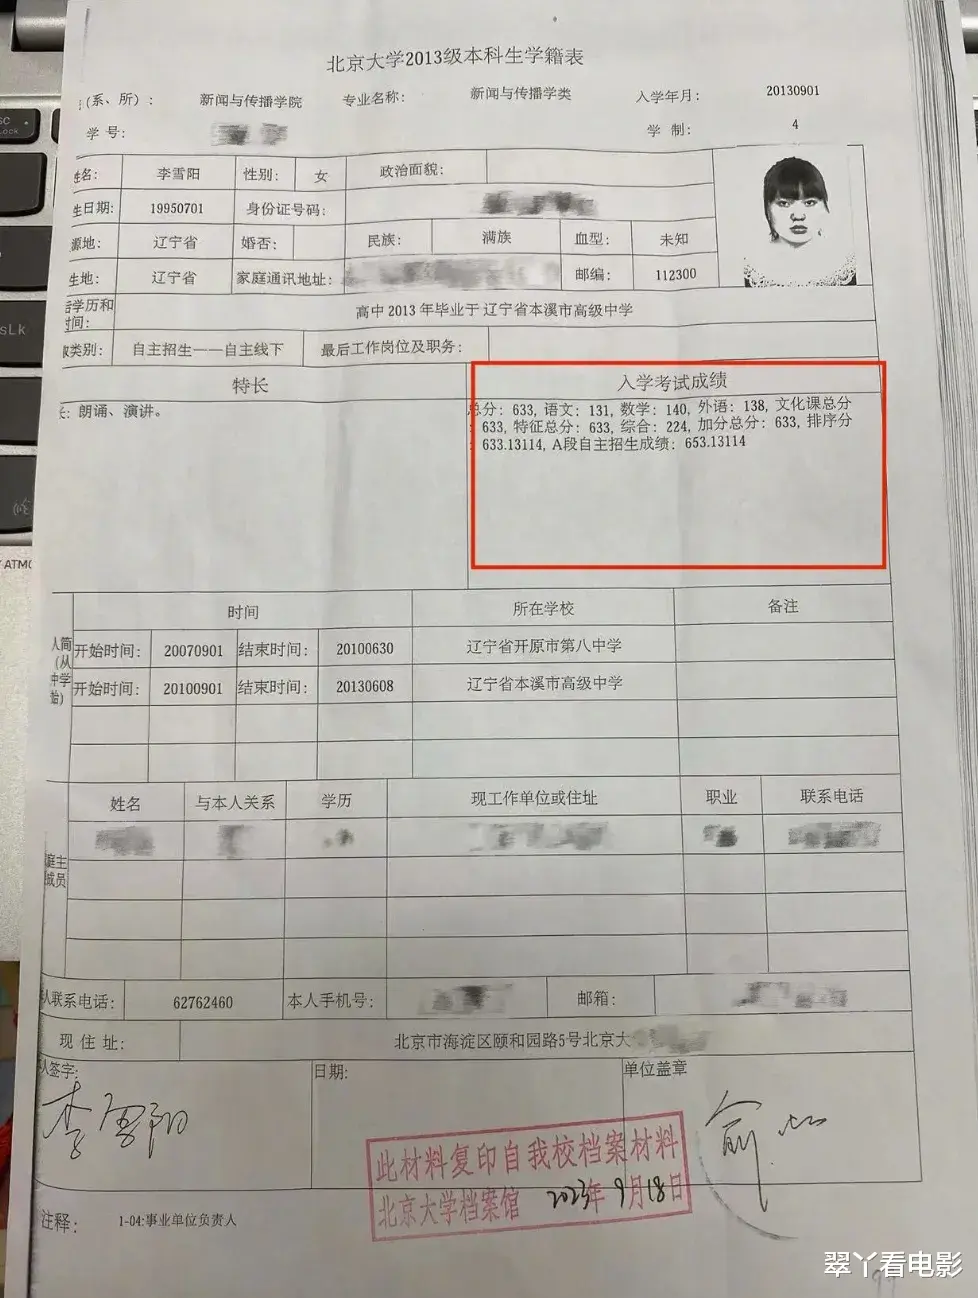 北京大学2013级本科生学籍表
(系、所)： 新闻与传播学院 专业名称： 新闻与传播学类 入学年月： 20130901
学 号： 学 制： 4
姓名： 李雪阳 性别： 女 政治面貌：
生日期： 19950701 身份证号码：
源地： 辽宁省 婚否： 民族： 满族 血型： 未知
生地： 辽宁省 家庭通讯地址： 邮编： 112300
学历和
时间： 高中 2013 年毕业于 辽宁省本溪市高级中学
类别： 自主招生——自主线下 最后工作岗位及职务：
特长 入学考试成绩
长：朗诵、演讲。
总分：633, 语文：131, 数学：140, 外语：138, 文化课总分
：633, 特征总分：633, 综合：224, 加分总分：633, 排序分
：633.13114, A段自主招生成绩：653.13114
人简
(从
中学
始)
时间 所在学校 备注
开始时间： 20070901 结束时间： 20100630 辽宁省开原市第八中学
开始时间： 20100901 结束时间： 20130608 辽宁省本溪市高级中学
庭主
成员
姓名 与本人关系 学历 现工作单位或住址 职业 联系电话
人联系电话： 62762460 本人手机号： 邮箱：
现 住 址： 北京市海淀区颐和园路5号北京大
人签字： 日期： 单位盖章
李雪阳
此材料复印自我校档案材料
北京大学档案馆 2023年9月18日
注释： 1-04:事业单位负责人
翠丫看电影